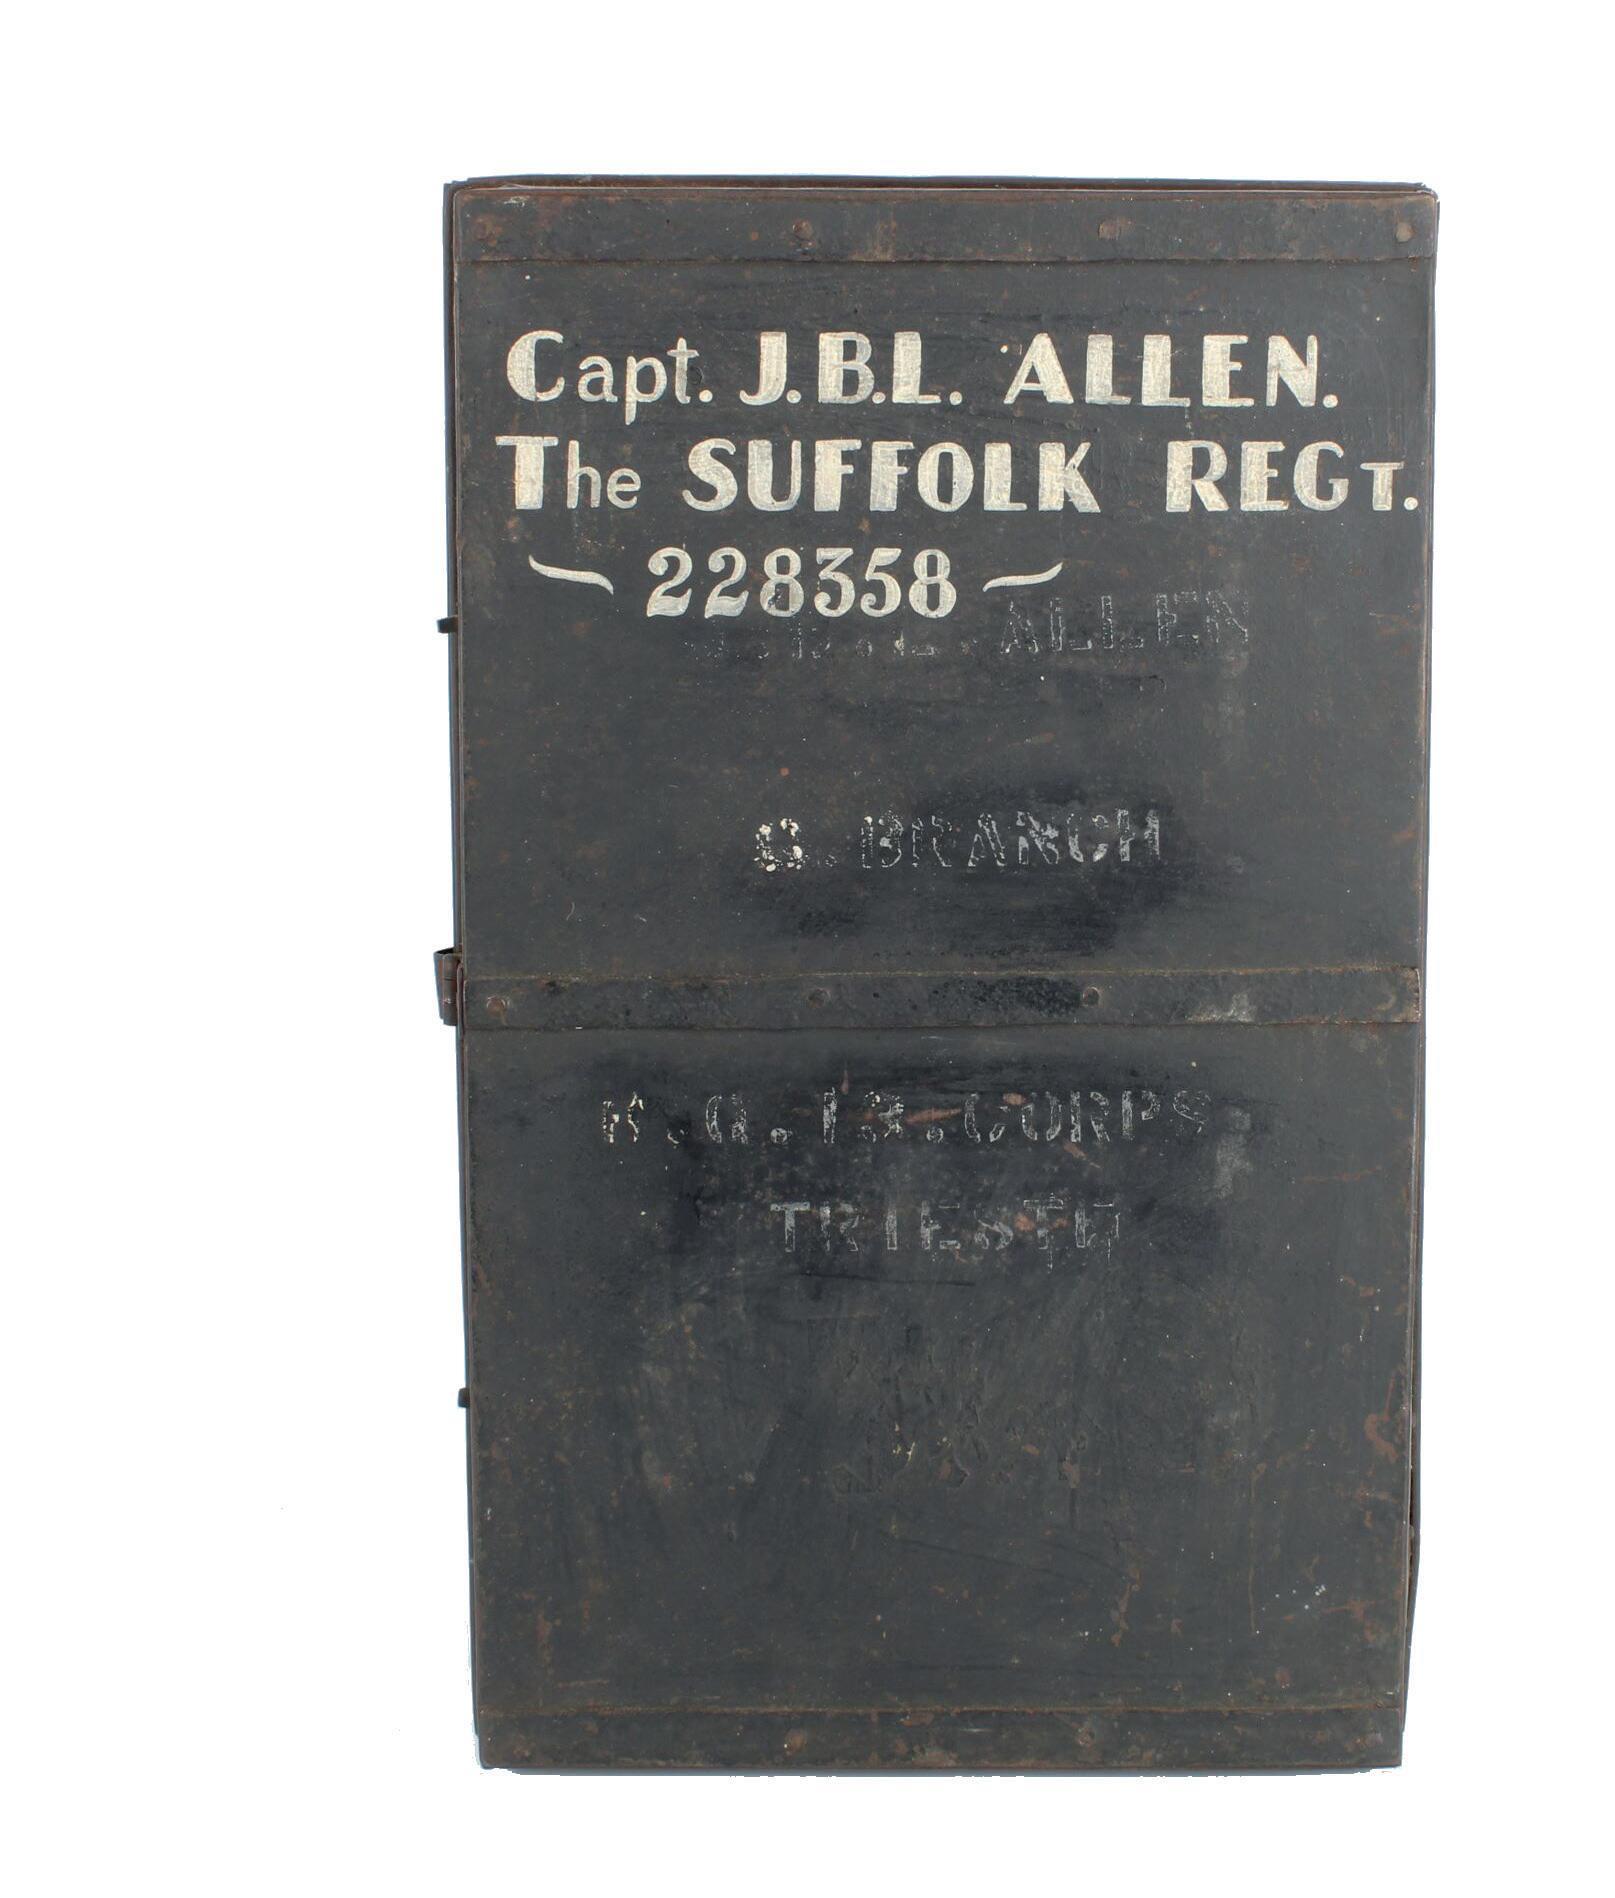 Capt. J.B.L. ALLEN.
The SUFFOLK REGT.
~ 228358 ~
ALLEN
BRANCH
H.Q.13.CORPS
TRIESTE